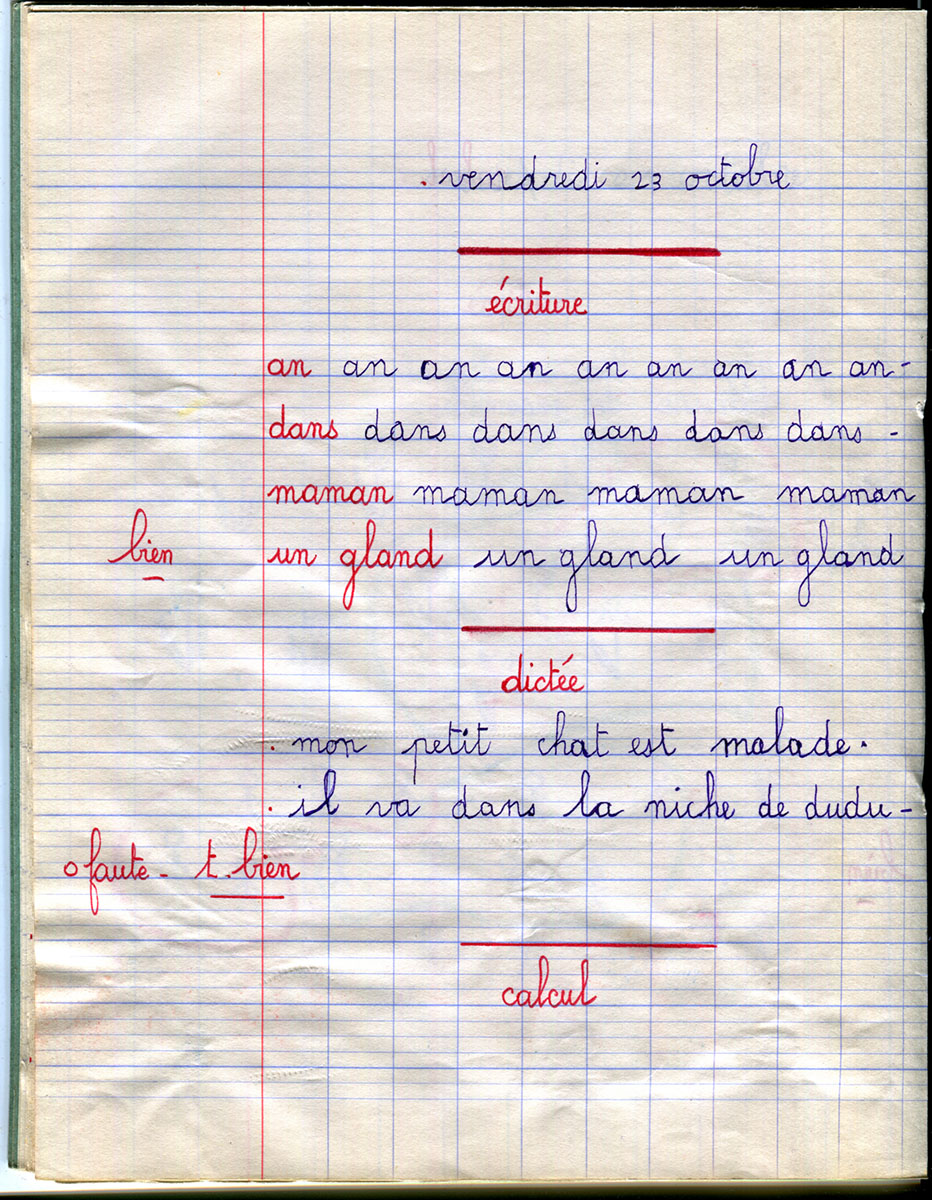 . vendredi 23 octobre
écriture
an an an an an an an an an -
dans dans dans dans dans dans -
maman maman maman maman
bien un gland un gland un gland
dictée
. mon petit chat est malade .
. il va dans la niche de dudu -
0 faute - t. bien
calcul